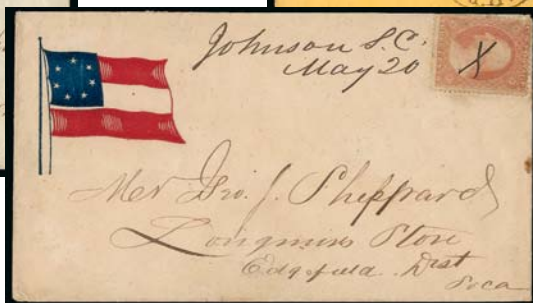 Johnson S.C.
May 20
X
Mr Geo. J. Sheppard
Longmires Store
Edgefield Dist
So ca